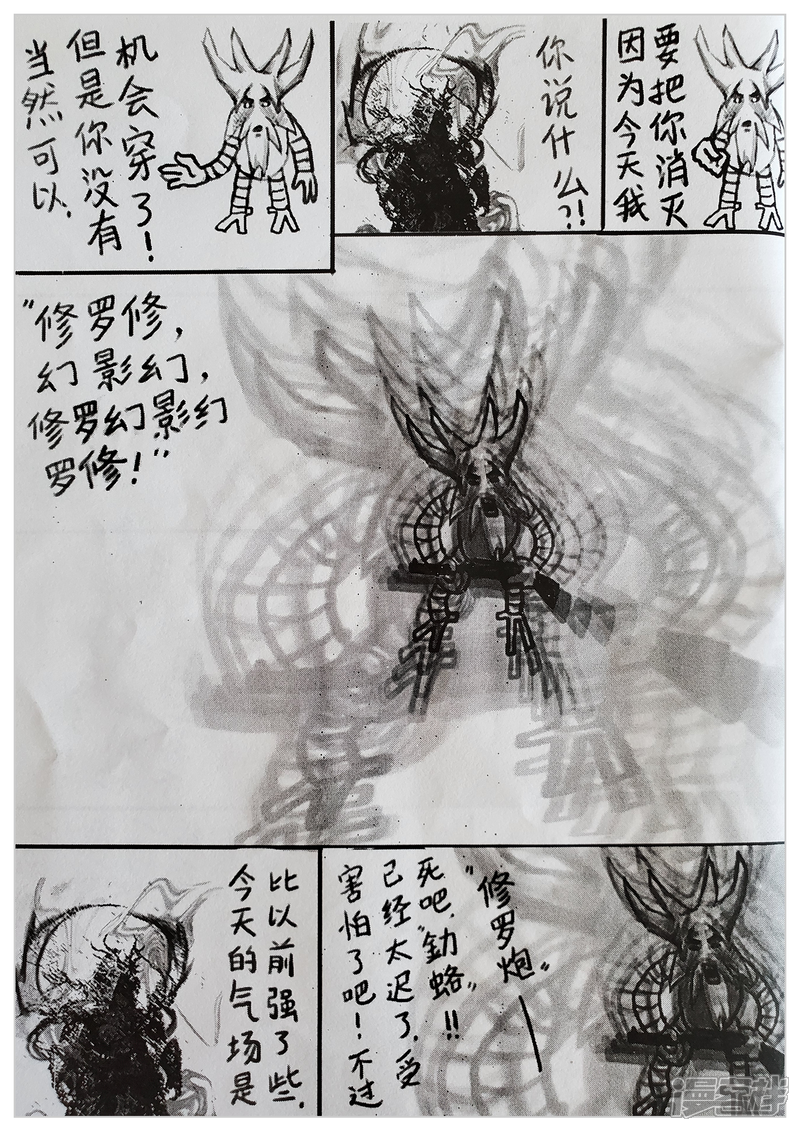 当然可以,
但是你没有
机会穿了!
你说什么?!
因为今天我
要把你消灭
"修罗修,
幻影幻,
修罗幻影幻
罗修!"
今天的气场是
比以前强了些.
害怕了吧!不过
已经太迟了,受
死吧,"釛蛒"!!
"修罗炮"—
漫客栈